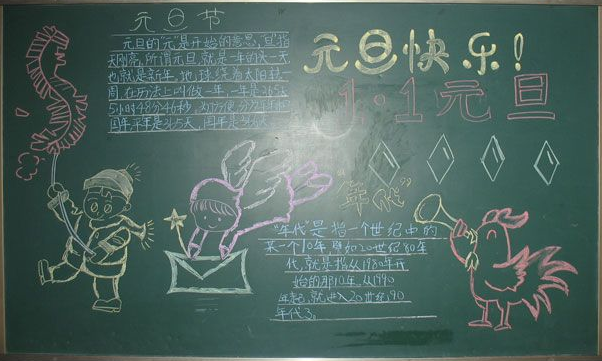 元旦节
元旦的"元"是开始的意思,旦指
天刚亮。所谓元旦,就是一年的头一天
也就是新年。地球绕着太阳转一
周,在历法上叫做一年,一年是365天
5小时48分46秒,为了方便分为平年和
闰年,平年是365天,闰年是366天
元旦快乐!
1·1元旦
"年代"
"年代"是指一个世纪中的
某一个10年,譬如20世纪80年
代,就是指从1980年开
始的那10年。从1990
年起,就进入20世纪90
年代了。